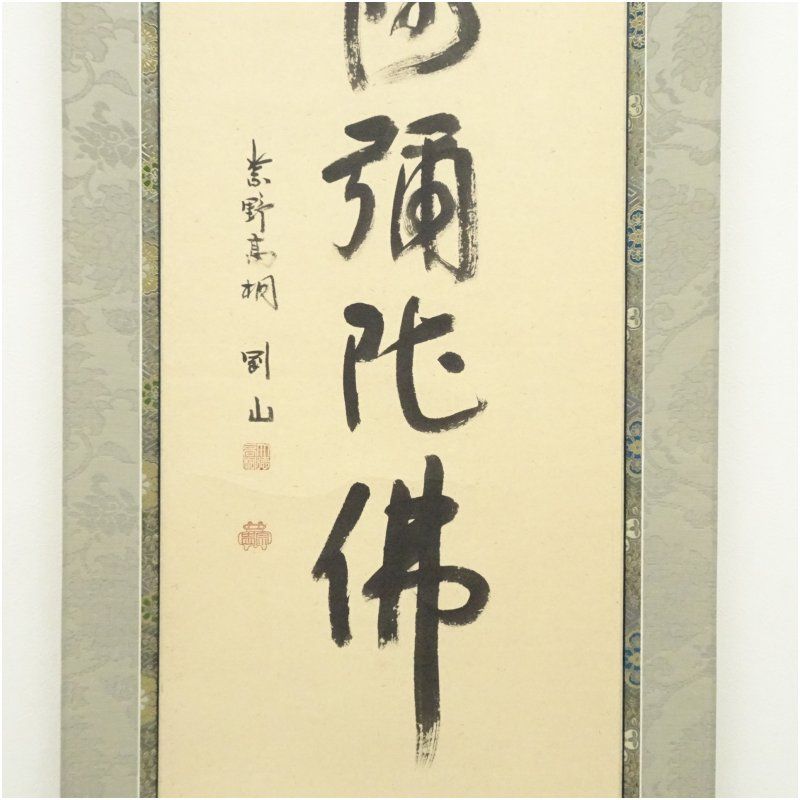 阿彌陀佛
紫野高桐 剛山